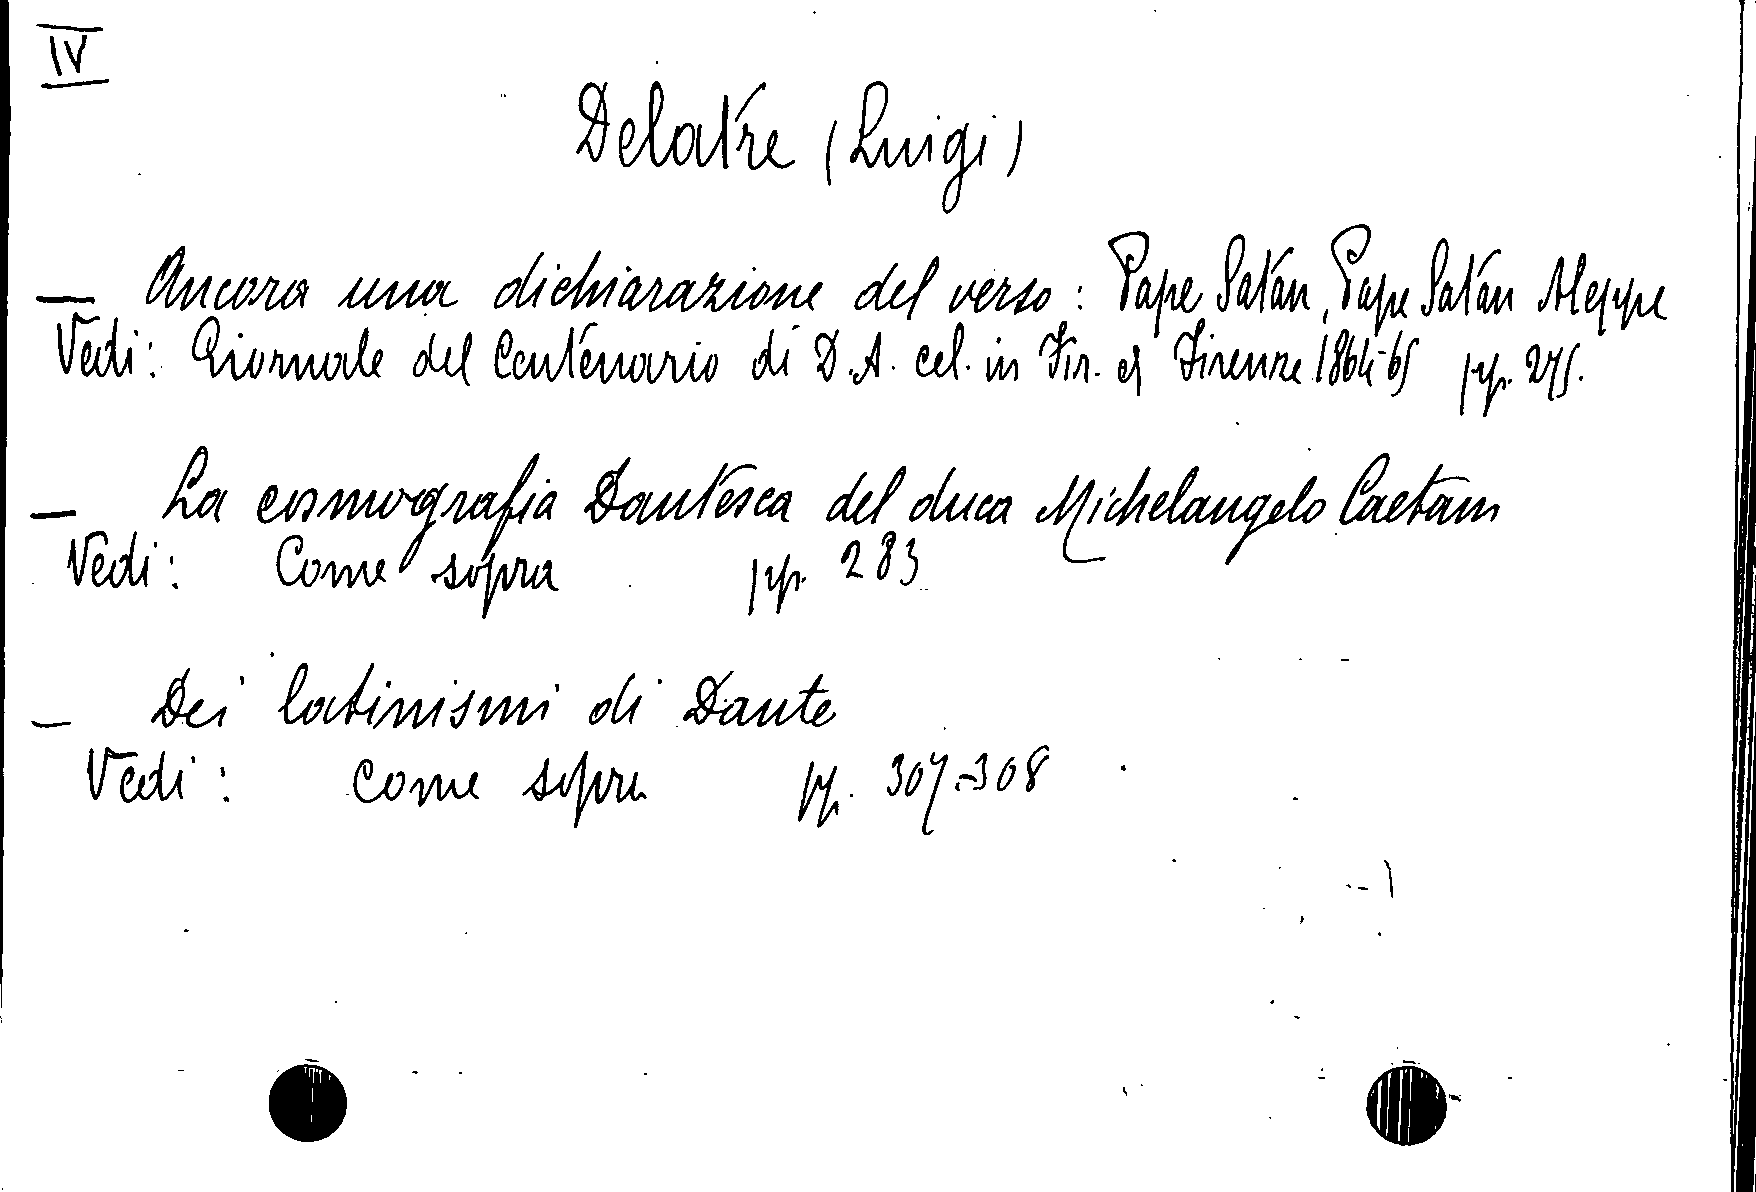 IV
Delatre (Luigi)
— Ancora una dichiarazione del verso: Pape Satàn, Pape Satàn Aleppe
Vedi: Giornale del Centenario di D. A. cel. in Fir. Firenze 1864-65 pp. 275.
— La cosmografia Dantesca del duca Michelangelo Caetani
Vedi: Come sopra pp. 283
— Dei latinismi di Dante
Vedi: Come sopra pp. 307-308